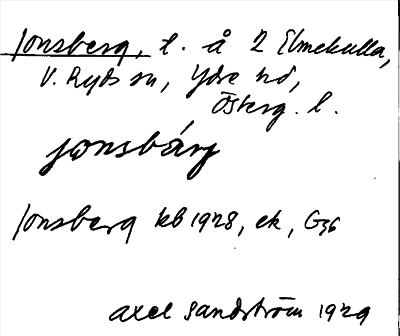 Jonsberg, t. å 2 Elmekulla,
V. Ryds sn, Ydre hd,
Österg. l.
jonsbárj
Jonsberg kb 1928, ek, G36
Axel Sandström 1929